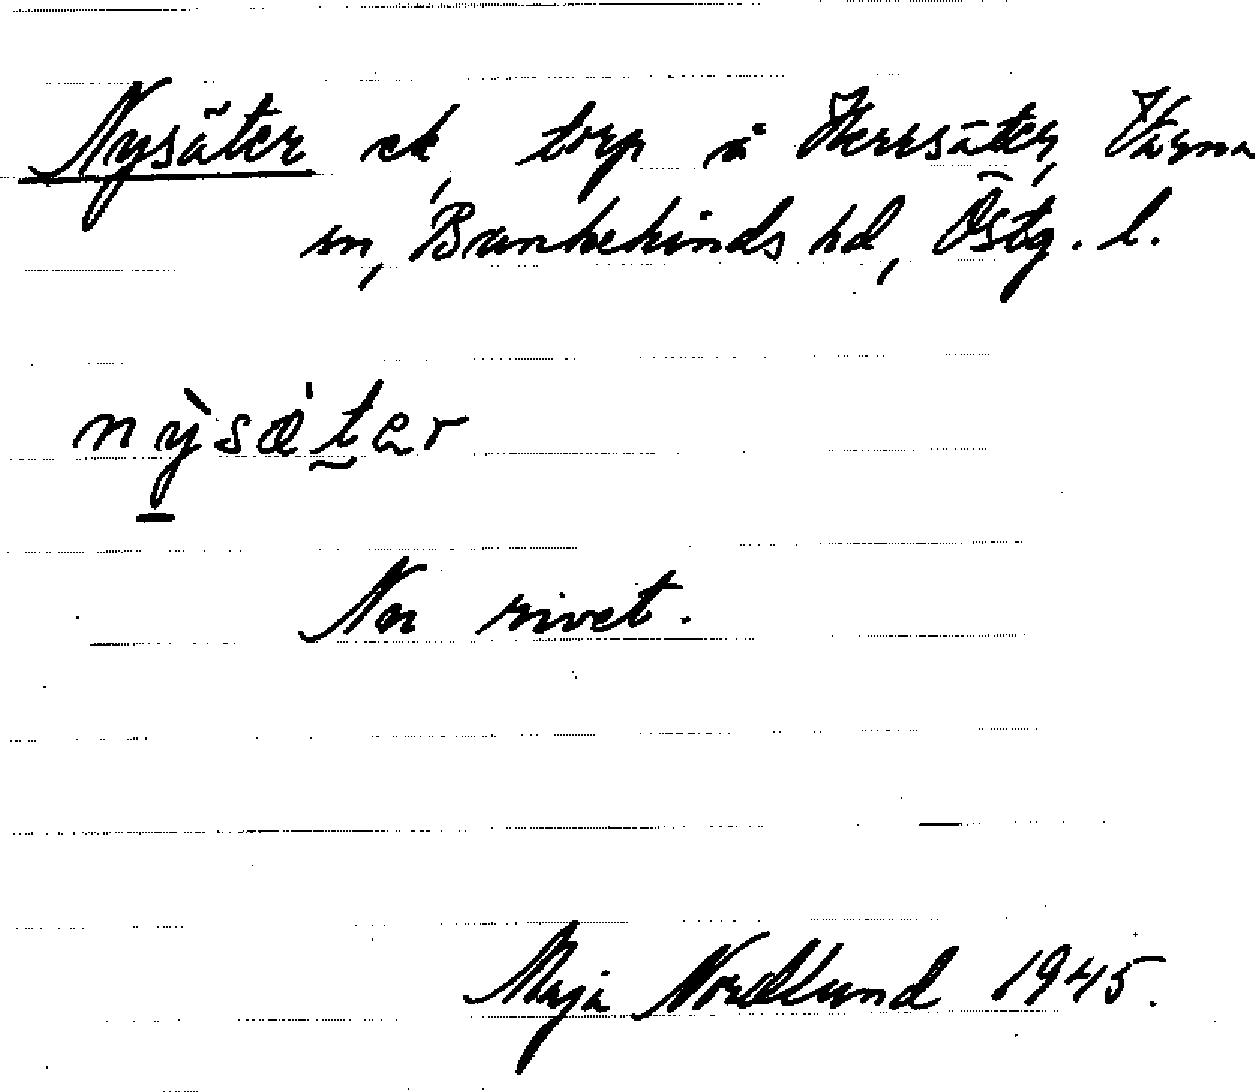 Nysäter ek torp å Herrsäter, Värna
sn, Bankekinds hd, Östg. l.
nỳsæ̀ter
Nu rivet.
Maja Nordlund 1945.